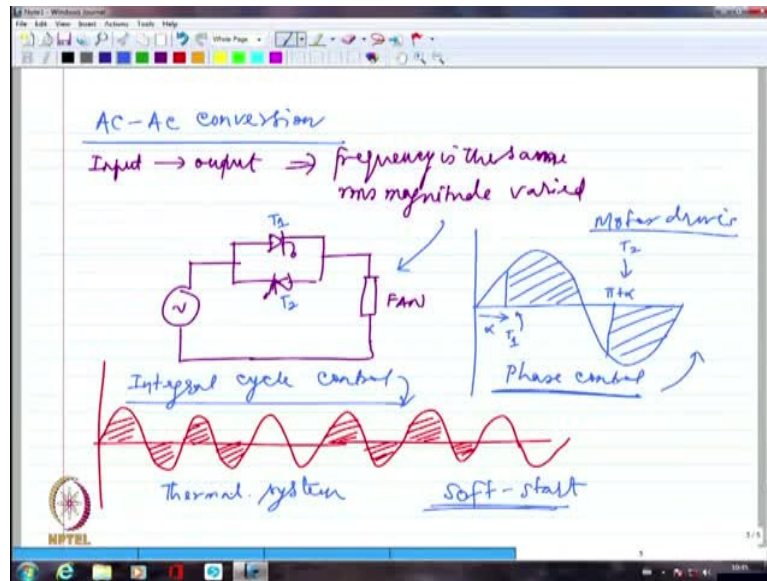 Note1 - Windows Journal
File Edit View Insert Actions Tools Help
Whole Page
AC-AC conversion
Input → output ⇒ frequency is the same
rms magnitude varied
Motor drives
T1
T2
V
FAN
T2
↓
π+α
α
T1
Phase control
Integral cycle control
Thermal system
Soft-start
NPTEL
5/5
5